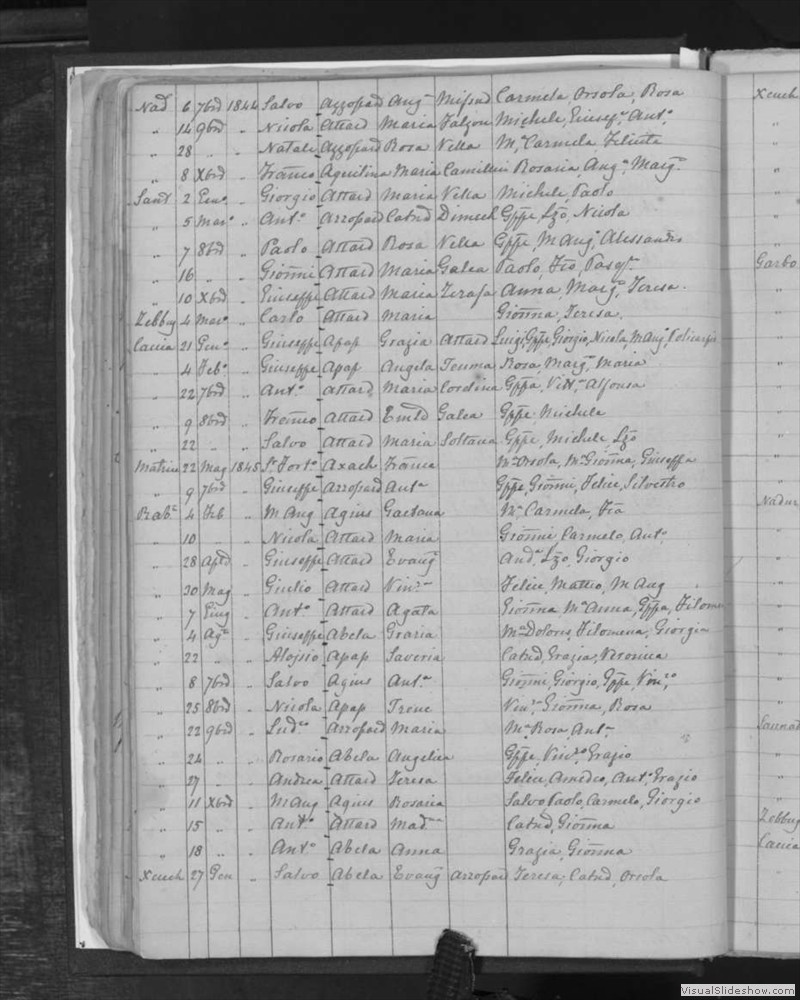 Nad 6 7bre 1844 Salvo Azzopard Aug Mifsud Carmela, Orsola, Rosa
" 14 9bre " Nicola Attard Maria Falzon Michele, Giusefª, Antº
" 28 " " Natale Azzopard Rosa Vella Mª Carmela, Felicita
" 8 Xbre " Franco Aquilina Maria Camilleri Rosaria, Angª, Margª
Sant 2 Genº " Giorgio Attard Maria Vella Michele, Paolo
" 5 Marº " Antº Azzopard Catnd Dimech Gppe, Lzo, Nicola
" 7 8bre " Paolo Attard Rosa Vella Gppe, M Aug, Alessandro
" 16 " " Gionni Attard Maria Galea Paolo, Fco, Pasq
" 10 Xbre " Giuseppe Attard Maria Zerafa Anna, Margª, Teresa
Zebbug 4 Marº " Carlo Attard Maria Gionna, Teresa
Caccia 21 Genº " Giuseppe Apap Grazia Attard Luigi, Gppe, Giorgio, Nicola, M Aug, Policarpo
" 4 Febº " Giuseppe Apap Angela Teuma Rosa, Margª, Maria
" 22 7bre " Antº Attard Maria Cordina Gppa, Vitª, Alfonsa
" 9 8bre " Franco Attard Emld Galea Gppe, Michele
" 22 " " Salvo Attard Maria Soltana Gppe, Michele, Lzo
Matrice 22 Mag 1845 Sr Fortº Axach Franca Mª Orsola, Mª Gionna, Giuseppa
" 9 7bre " Giuseppe Azzopard Antª Gppe, Gionni, Felice, Silvestro
Rabº 4 Feb " M Aug Agius Gaetana Mª Carmela, Fca
" 10 " " Nicola Attard Maria Gionni, Carmelo, Antº
" 28 Aple " Giuseppe Attard Evang Andª, Lzo, Giorgio
" 30 Mag " Giulio Attard Vinª Felice, Matteo, M Aug
" 7 Giug " Antº Attard Agata Gionna, Mª Anna, Gppa, Filomena
" 4 Agº " Giuseppe Abela Grazia Mª Dolores, Filomena, Giorgia
" 22 " " Alojsio Apap Saveria Catnd, Grazia, Veronica
" 8 7bre " Salvo Agius Antª Gionni, Giorgio, Gppe, Vinzº
" 25 8bre " Nicola Apap Irene Vinª, Gionna, Rosa
" 22 9bre " Ludco Azzopard Maria Mª Rosa, Antª
" 24 " " Rosario Abela Angelica Gppe, Vinzº, Grazio
" 27 " " Andrea Attard Teresa Felice, Amedeo, Antº, Grazio
" 11 Xbre " M Aug Agius Rosaria Salvo Paolo, Carmelo, Giorgio
" 15 " " Antº Attard Madª Catnd, Gionna
" 18 " " Antº Abela Anna Grazia, Gionna
Xeuch 27 Gen " Salvo Abela Evang Azzopard Teresa, Catnd, Orsola
Xeuch
Garbo
Nadur
Sannat
Zebbug
Caccia
VisualSlideshow.com